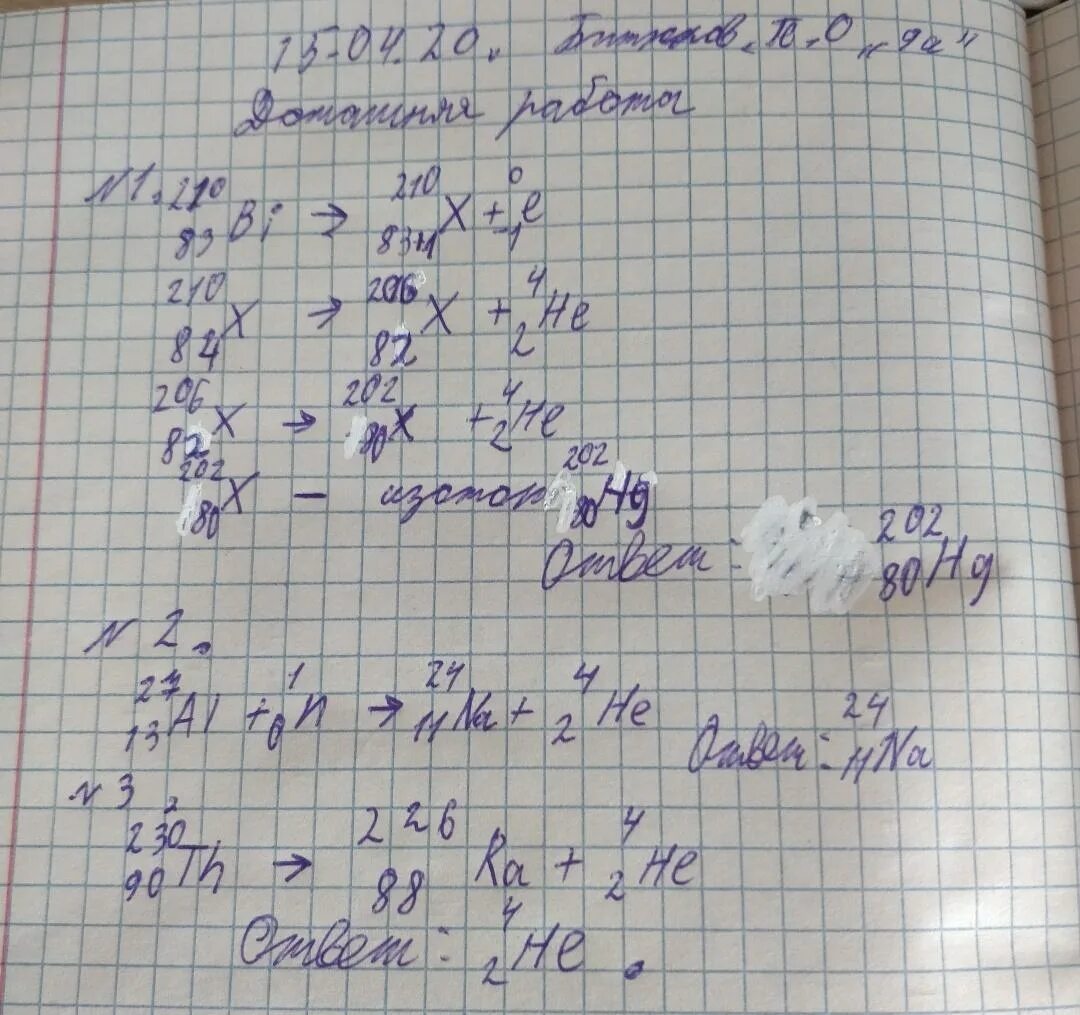 15.04.20. П.О „9а"
Домашняя работа
№1. ²¹⁰₈₃Bi → ²¹⁰₈₃₊₁X + ⁰₋₁e
²¹⁰₈₄X → ²⁰⁶₈₂X + ⁴₂He
²⁰⁶₈₂X → ²⁰²₈₀X + ⁴₂He
²⁰²₈₀X – изотоп ²⁰²₈₀Hg
Ответ: ²⁰²₈₀Hg
№2.
²⁷₁₃Al + ¹₀n → ²⁴₁₁Na + ⁴₂He
Ответ: ²⁴₁₁Na
№3
²³⁰₉₀Th → ²²⁶₈₈Ra + ⁴₂He
Ответ: ⁴₂He.